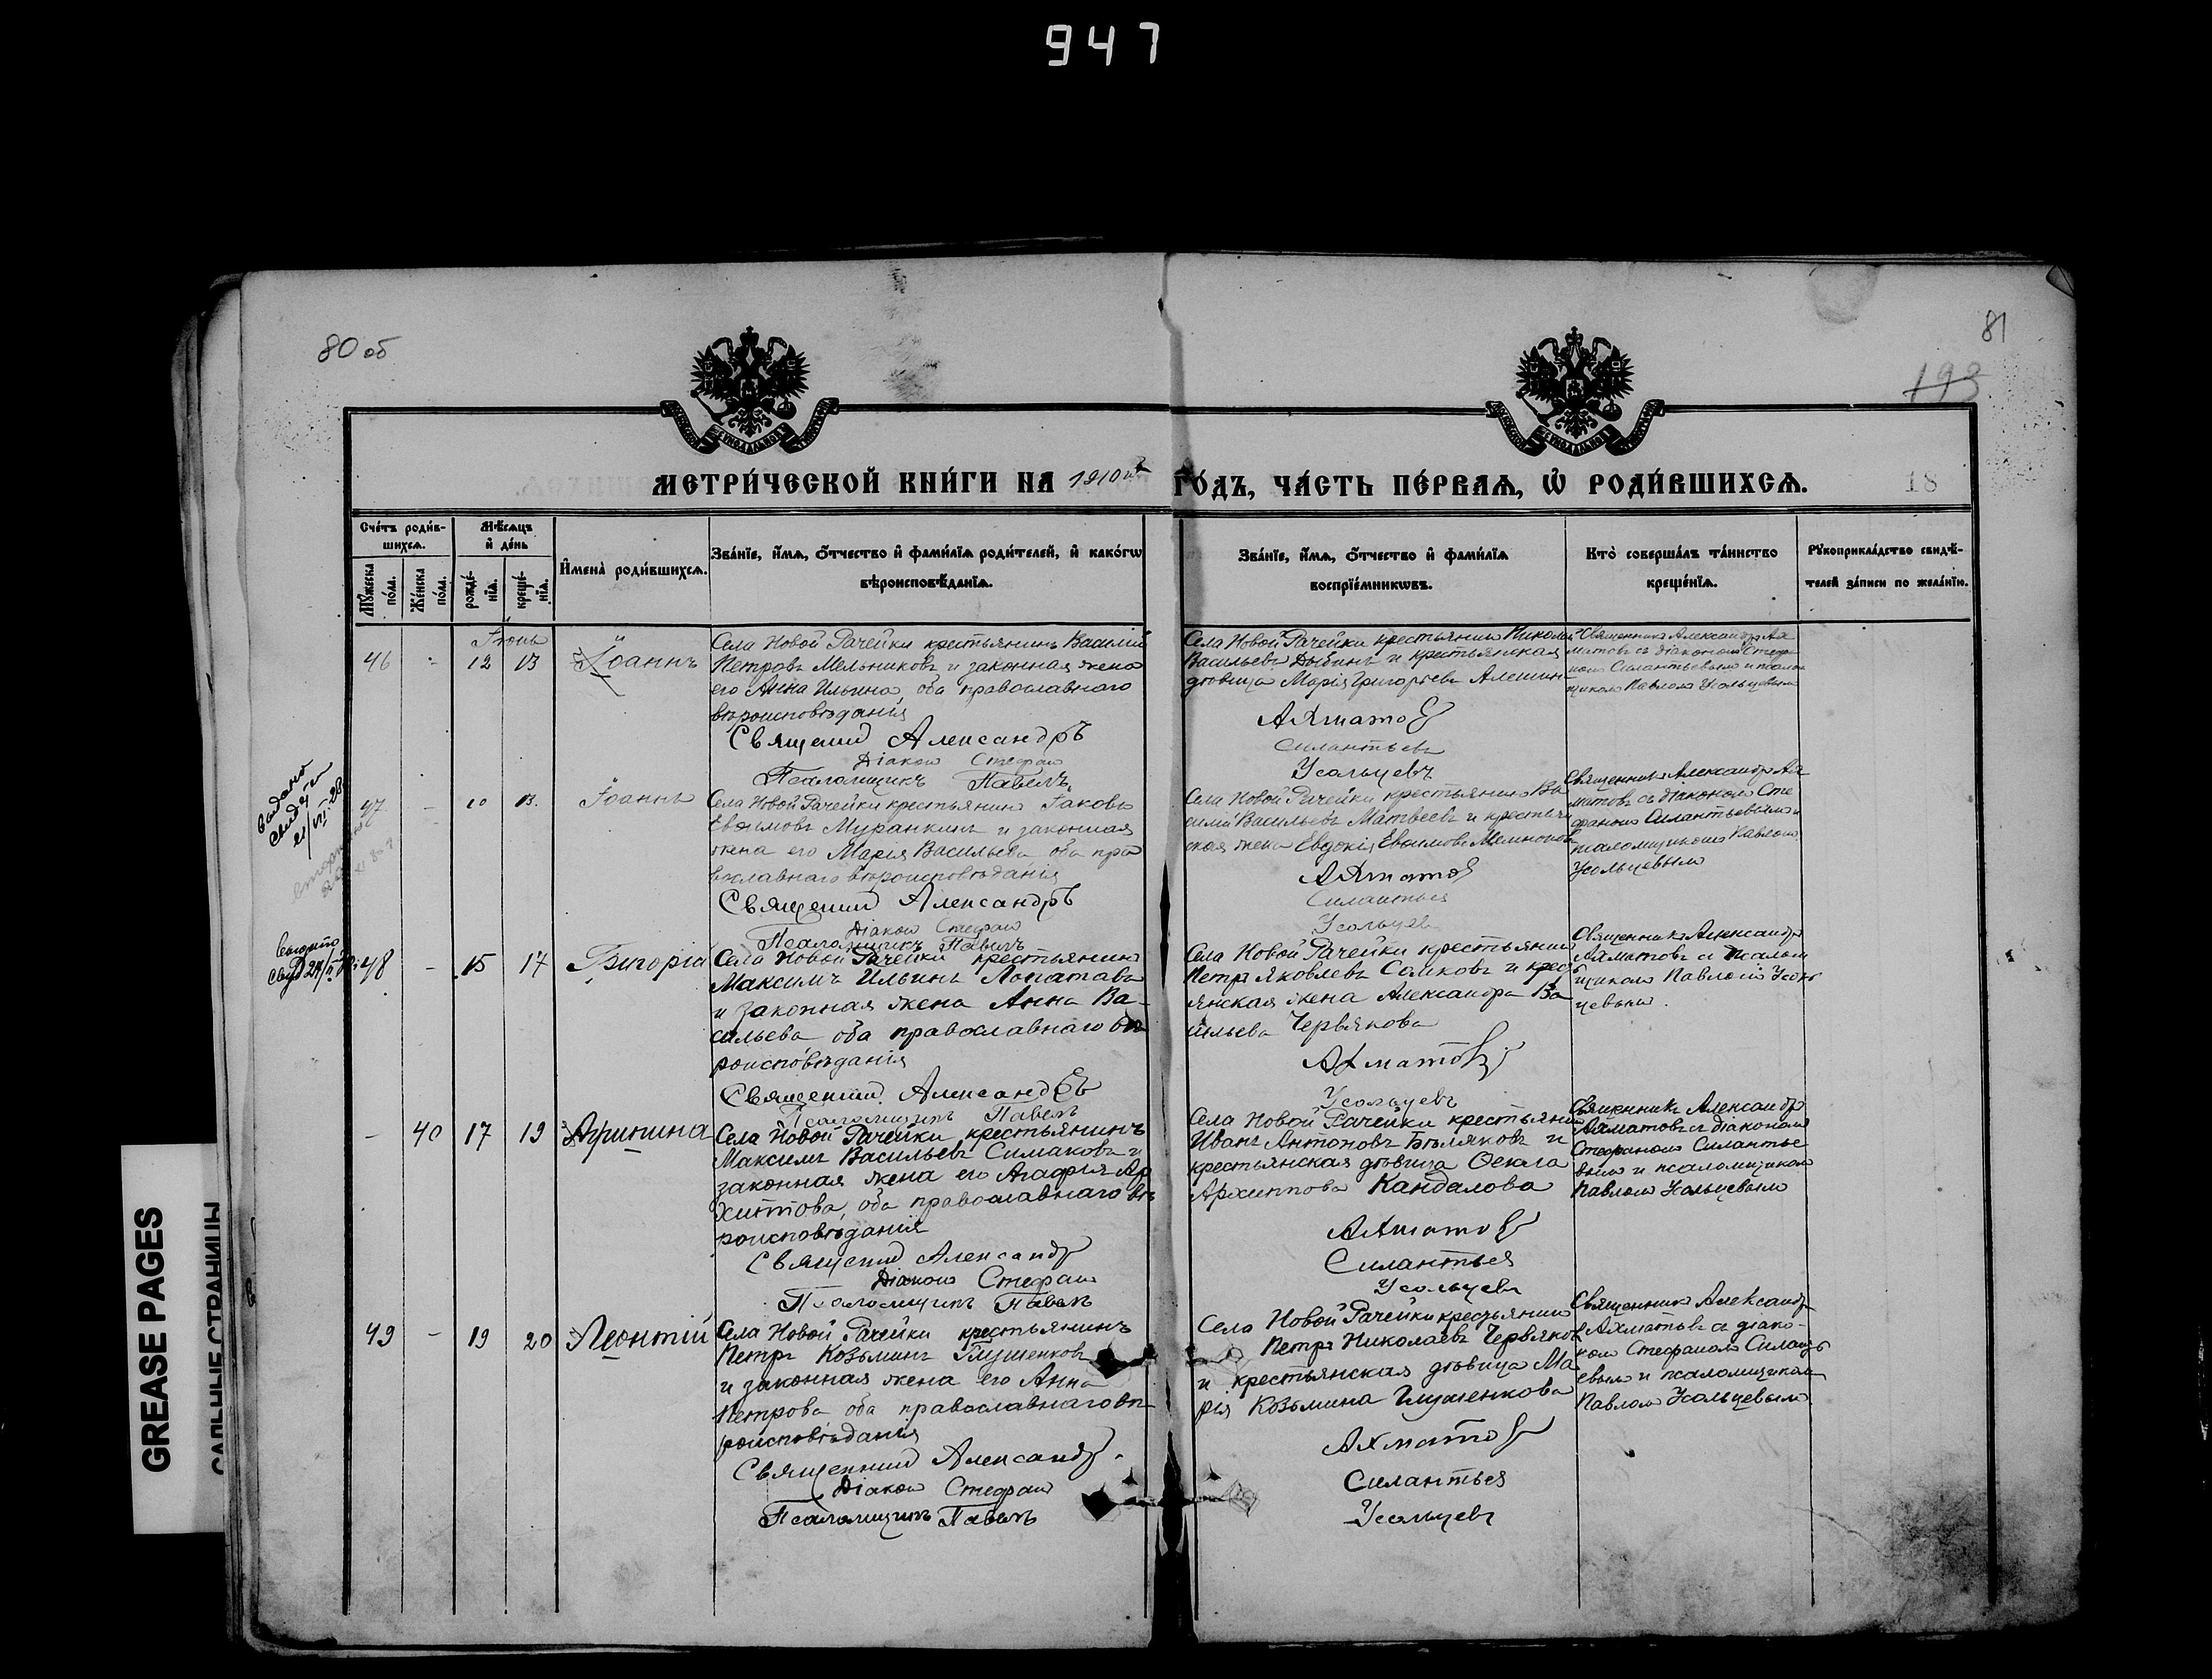 947
80 об
81
193
МЕТРИ́ЧЕСКОЙ КНИ́ГИ НА 1910й ГО́ДЪ, ЧА́СТЬ ПЕ́РВАѦ, Ѡ҆ РОДИ́ВШИХСѦ.
18
Сче́тъ роди́в-
шихсѧ.
Мѣ́сѧцъ
и҆ де́нь
Мꙋ́жеска по́ла.
Же́нска по́ла.
рожде́-
нїѧ.
креще́-
нїѧ.
И҆мена̀ роди́вшихсѧ.
Зва́нїе, и҆́мѧ, ѻ҆́тчество и҆ фами́лїѧ роди́телей, и҆ како́гѡ
вѣроисповѣ́данїѧ.
Зва́нїе, и҆́мѧ, ѻ҆́тчество и҆ фами́лїѧ
воспрїе́мникѡвъ.
Кто̀ соверша́лъ та́инство
креще́нїѧ.
Рꙋкоприкла́дство свидѣ́-
телей за́писи по жела́нїю.
Іюнь
46 - 12 13 Іоаннъ
Села Новой Рачейки крестьянинъ Василій
Петровъ Мельниковъ и законная жена
его Анна Ильина, оба православнаго
вѣроисповѣданія
Священникъ Александръ
Діаконъ Стефанъ
Псаломщикъ Павелъ
Села Новой Рачейки крестьянинъ Николай
Васильевъ Дыбинъ и крестьянская
дѣвица Марія Григорьева Алешин
Ахматовъ
Силантьевъ
Усольцевъ
Священникъ Александръ Ах
матовъ съ діакономъ Стеф
номъ Силантьевымъ и псалом
щикомъ Павломъ Усольцевымъ
47 - 10 13. Іоаннъ
Села Новой Рачейки крестьянинъ Іаковъ
Евѳимовъ Муранкинъ и законная
жена его Марія Васильева оба пра
вославнаго вѣроисповѣданія
Священникъ Александръ
Діаконъ Стефанъ
Псаломщикъ Павелъ
Села Новой Рачейки крестьянинъ Ва
силій Васильевъ Матвеевъ и крестьян
ская жена Евдокія Евѳимова
Ахматовъ
Силантьев
Усольцев
Священникъ Александръ Ах
матовъ съ діакономъ Сте
фаномъ Силантьевымъ и
псаломщикомъ Павломъ
Усольцевымъ
48 - 15 17
Села Новой Рачейки крестьянинъ
Максимъ Ильинъ Лопатавъ
и законная жена Анна Ва-
сильева оба православнаго вѣ
роисповѣданія
Священникъ Александръ
Псаломщикъ Павелъ
Села Новой Рачейки крестьянин
Петръ Яковлевъ Соиковъ и крестъ
янская жена Александра Ва
сильева Червякова
Ахматовъ
Усольцевъ
Священникъ Александръ
Ахматовъ съ псалом
щикомъ Павломъ Усоль
цевымъ.
- 40 17 19 Агрипина
Села Новой Рачейки крестьянинъ
Максимъ Васильевъ Симаковъ и
законная жена его Агафья Ар
хиппова, оба православнаго вѣ
роисповѣданія
Священникъ Александръ
Діаконъ Стефанъ
Псаломщикъ Павелъ
Села Новой Рачейки крестьянин
Иванъ Антоновъ Бѣляковъ и
крестьянская дѣвица Ѳекла
Архиппова Кандалова
Ахматовъ
Силантьев
Усольцевъ
Священникъ Александръ
Ахматовъ съ діакономъ
Стефаномъ Силантье
вымъ и псаломщикомъ
Павломъ Усольцевымъ
49 - 19 20 Леонтій
Села Новой Рачейки крестьянинъ
Петръ Козьминъ Глушенковъ
и законная жена его Анна
Петрова оба православнаго вѣ
роисповѣданія
Священникъ Александръ.
Діаконъ Стефанъ
Псаломщикъ Павелъ
Села Новой Рачейки крестьянинъ
Петръ Николаевъ Червяков
и крестьянская дѣвица Ма
рія Козьмина Глушенкова
Ахматов
Силантьев
Усольцевъ
Священникъ Александръ
Ахматовъ съ діако-
номъ Стефаномъ Силантъ
евымъ и псаломщикомъ
Павломъ Усольцевымъ
GREASE PAGES
САЛЬНЫЕ СТРАНИЦЫ